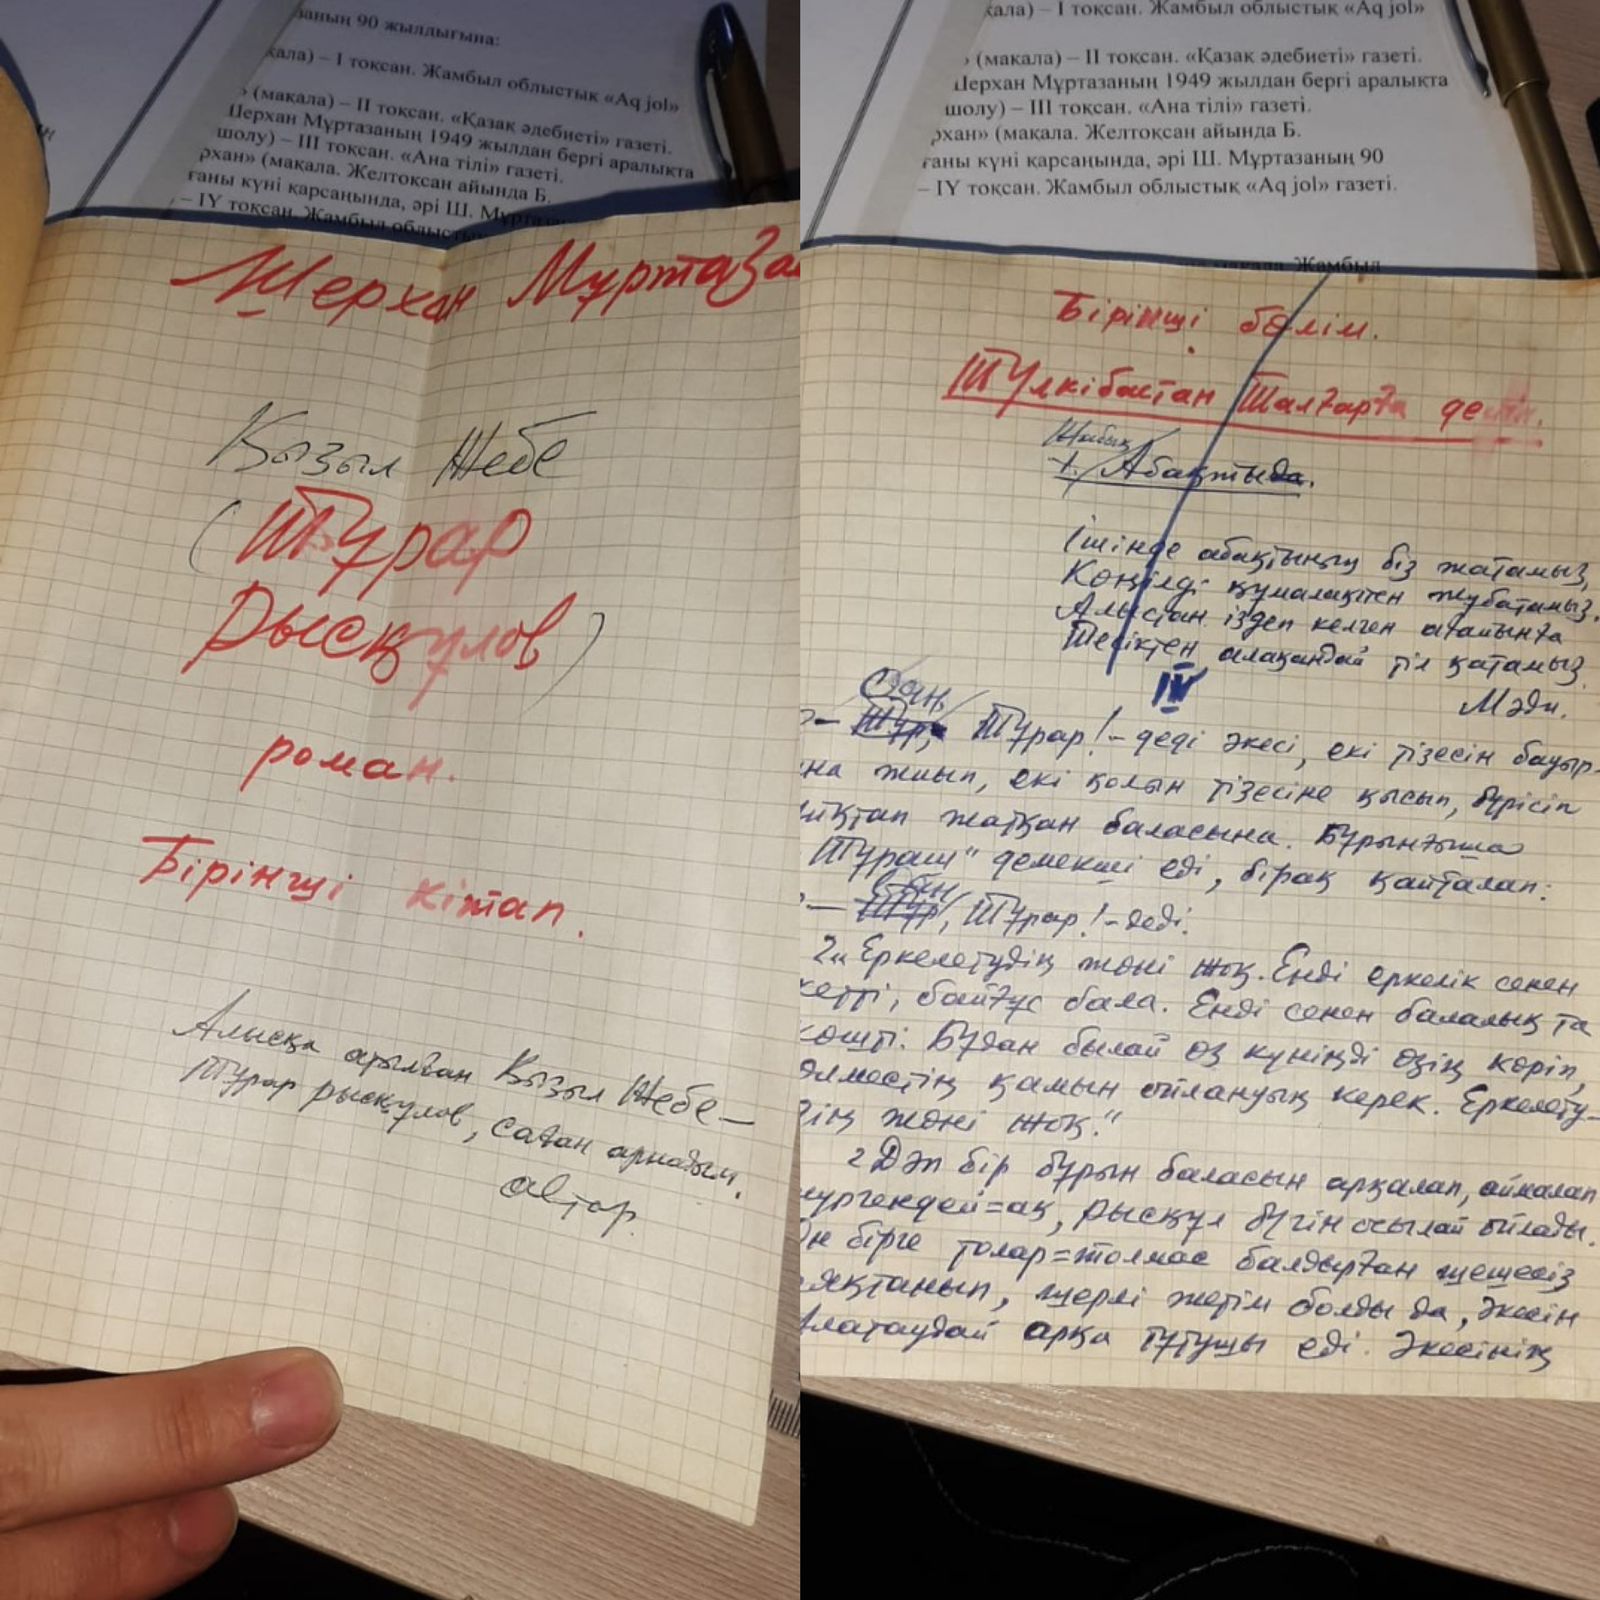 заның 90 жылдығына:
қала) – І тоқсан. Жамбыл облыстық «Aq jol»
(мақала) – ІІ тоқсан. «Қазақ әдебиеті» газеті.
Шерхан Мұртазаның 1949 жылдан бергі аралықта
шолу) – ІІІ тоқсан. «Ана тілі» газеті.
рхан» (мақала. Желтоқсан айында Б.
ғаны күні қарсаңында, әрі Ш. Мұртазаның
– ІҮ тоқсан. Жамбыл облыстық
Шерхан Мұртаза
Қызыл Жебе
(Тұрар
Рысқұлов)
роман.
Бірінші кітап.
Алысқа атылған Қызыл Жебе —
Тұрар Рысқұлов, саған арнадым.
автор.
қала) – І тоқсан. Жамбыл облыстық «Aq jol»
(мақала) – ІІ тоқсан. «Қазақ әдебиеті» газеті.
Шерхан Мұртазаның 1949 жылдан бергі аралықта
шолу) – ІІІ тоқсан. «Ана тілі» газеті.
рхан» (мақала. Желтоқсан айында Б.
ғаны күні қарсаңында, әрі Ш. Мұртазаның 90
– ІҮ тоқсан. Жамбыл облыстық «Aq jol» газеті.
мақала. Жамбыл
Бірінші бөлім.
Түлкібастан Талғарға дейін.
1. Абақтыда.
Ішінде абақтының біз жатамыз,
Көңілді құмалақпен жұбатамыз.
Алыстан іздеп келген ағайынға
Тесіктен алақандай тіл қатамыз.
Мәди.
IV
Оян,
— Тұр, Тұрар! – деді әкесі, екі тізесін бауыр-
на жиып, екі қолын тізесіне қысып, бүрісіп
ұйықтап жатқан баласына. Бұрынғыша
„Тұраш" демекші еді, бірақ қайталап:
Оян
— Тұр, Тұрар! – деді.
„Еркелетудің жөні жоқ. Енді еркелік сенен
кетті, байғұс бала. Енді сенен балалық та
көшті. Бұдан былай өз күніңді өзің көріп,
өлместің қамын ойлануың керек. Еркелету-
дің жөні жоқ."
Дәл бір бұрын баласын арқалап, аймалап
жүргендей=ақ, Рысқұл бүгін осылай ойлады.
Он бірге толар=толмас балдырған шешесіз
аяқтанып, шерлі жетім болды да, әкесін
Алатаудай арқа тұтушы еді. Әкесінің